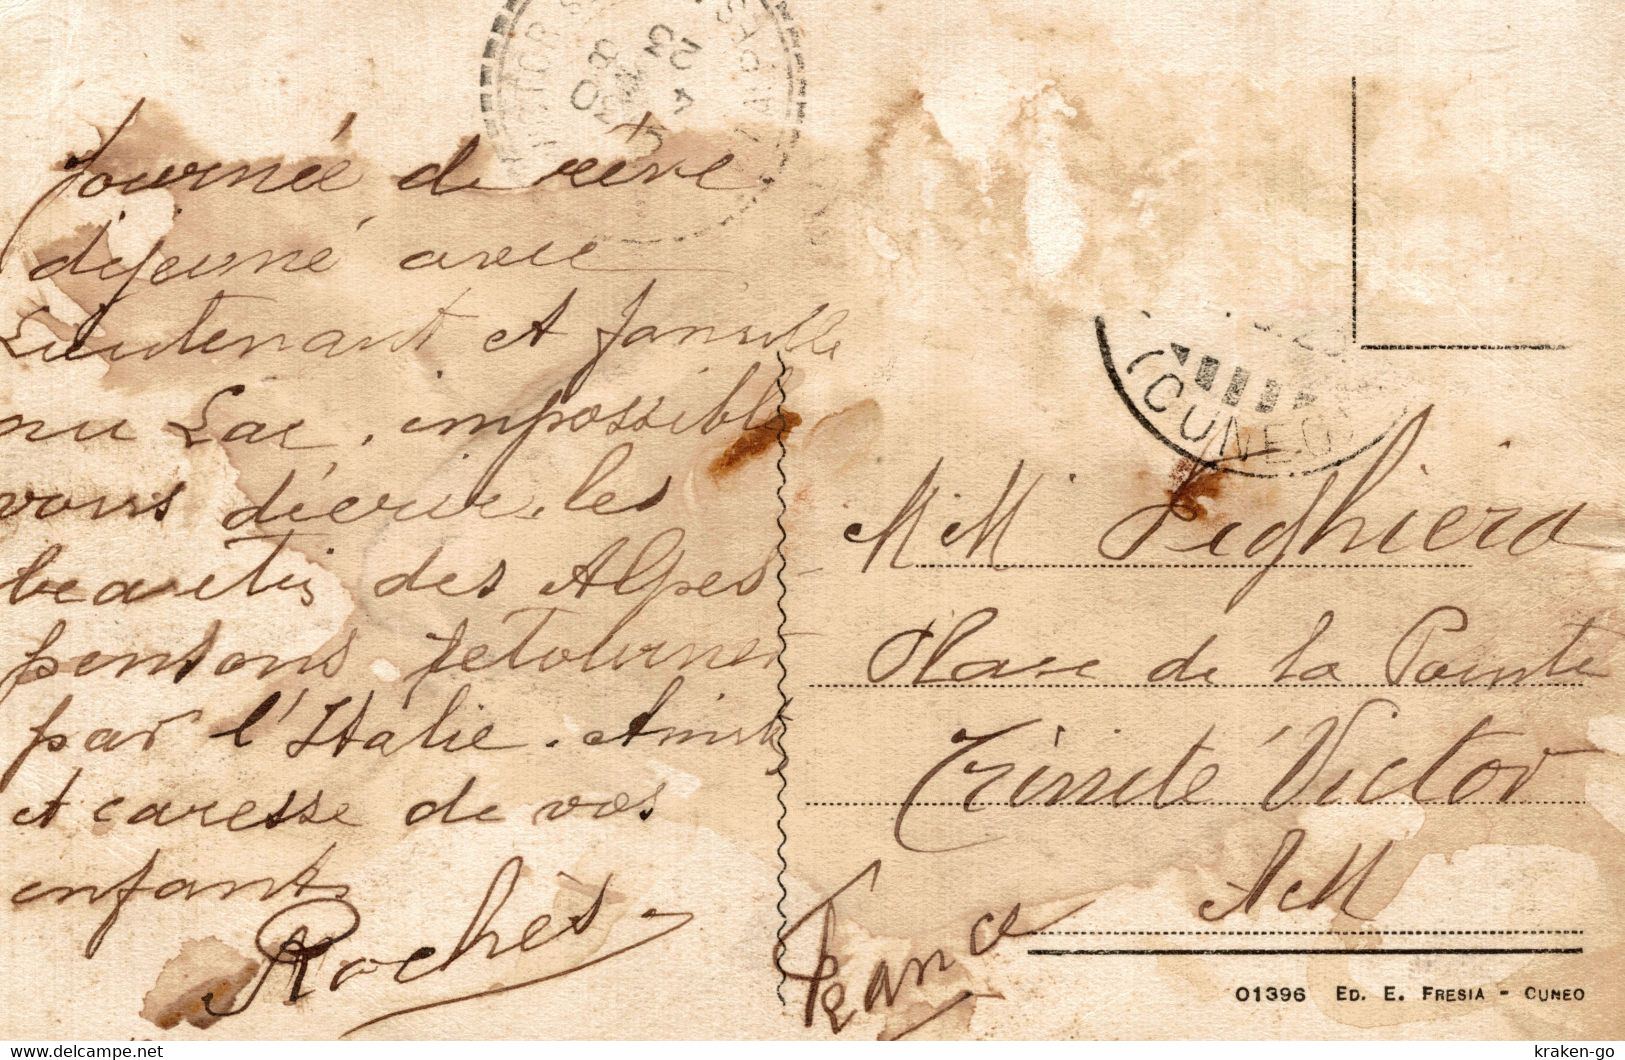 Journée de rêve
dejeuné avec
Lieutenant et famille
au Lac. impossible
vous décrire les
beautés des Alpes-
pensons retourner
par l'Italie. Amitiés
et caresse de vos
enfants
Roches
M. M. Peghiera
Place de la Pointe
Trinité Victor
A M
France
(CUNEO)
01396 ED. E. FRESIA - CUNEO
kraken-go